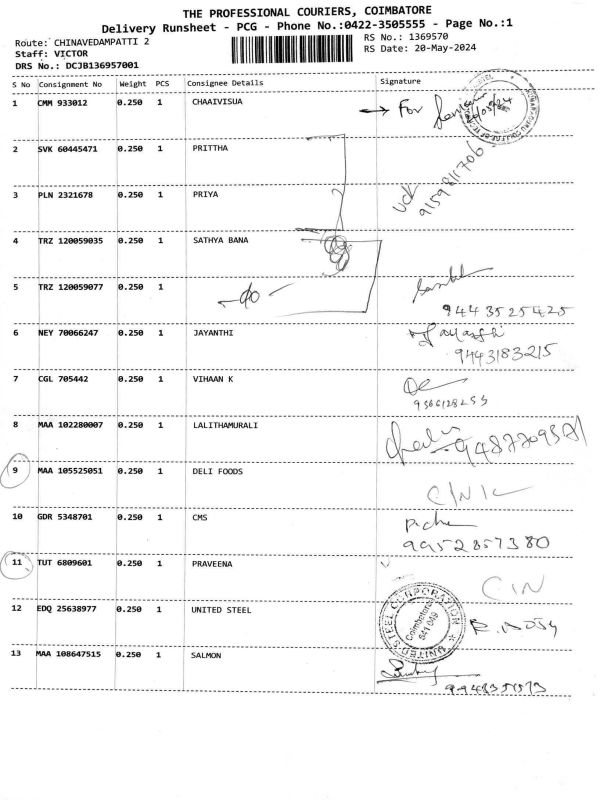 THE PROFESSIONAL COURIERS, COIMBATORE
Delivery Runsheet - PCG - Phone No.:0422-3505555 - Page No.:1
Route: CHINAVEDAMPATTI 2
Staff: VICTOR
DRS No.: DCJB136957001
RS No.: 1369570
RS Date: 20-May-2024
S No Consignment No Weight PCS Consignee Details Signature
1 CMM 933012 0.250 1 CHAAIVISUA For
2 SVK 60445471 0.250 1 PRITTHA
3 PLN 2321678 0.250 1 PRIYA
9159811706
4 TRZ 120059035 0.250 1 SATHYA BANA
5 TRZ 120059077 0.250 1
9443525425
6 NEY 70066247 0.250 1 JAYANTHI
9443183215
7 CGL 705442 0.250 1 VIHAAN K
8 MAA 102280007 0.250 1 LALITHAMURALI
9 MAA 105525051 0.250 1 DELI FOODS
10 GDR 5348701 0.250 1 CMS
9952857380
11 TUT 6809601 0.250 1 PRAVEENA
12 EDQ 25638977 0.250 1 UNITED STEEL
UNITED STEEL CORPORATION
Coimbatore
641 049
13 MAA 108647515 0.250 1 SALMON